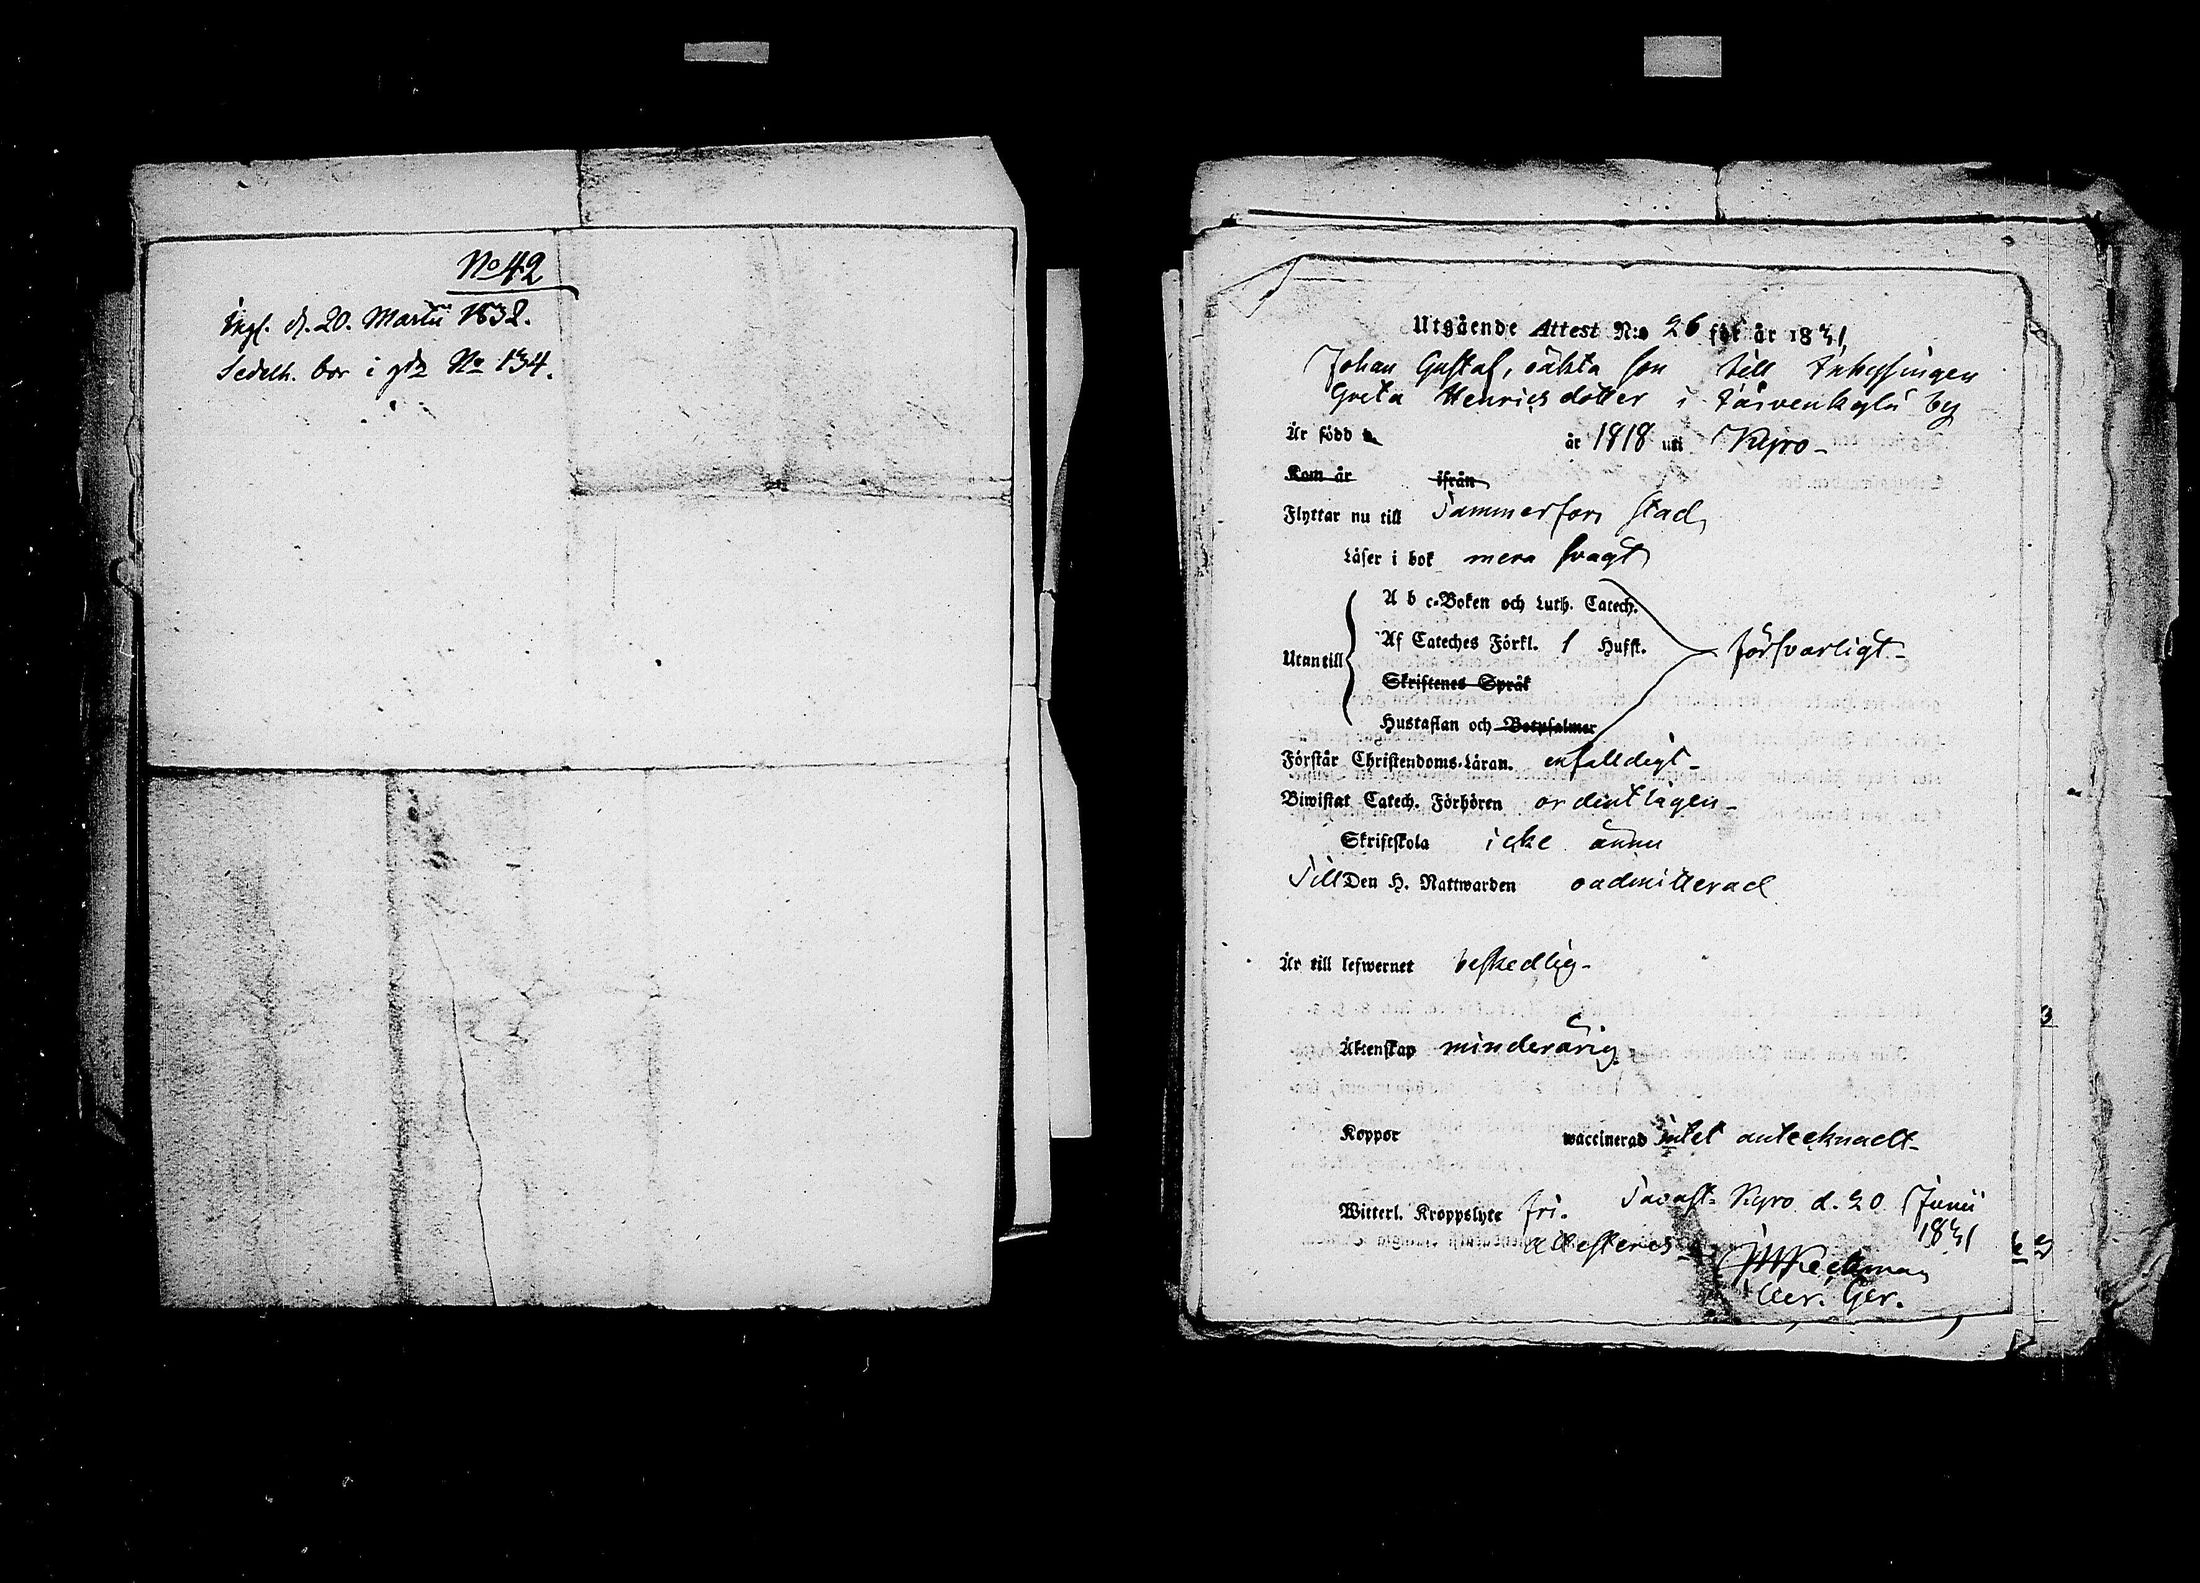 No 42
Ingf. d. 20. Martii 1832.
Sedelh. bor i gdn No 134.
Utgående Attest N:o 26 för år 1831,
Johan Gustaf, oäkta son till Inhysingen
Greta Henricsdotter i Järvenkylä by
Är född år 1818 uti Kyro-
Kom år ifrån
Flyttar nu till Tammerfors stad,
Läser i bok mera svagt
A b c-Boken och Luth. Catech.
Af Cateches Förkl. 1 Hufst.
Utantill försvarligt-
Skriftenes Språk
Hustaflan och Botpsalmer
Förstår Christendoms-Läran. enfalldigt-
Biwistat Catech. Förhören ordentligen-
Skriftskola icke ännu
Till Den H. Nattwarden oadmitterad
Är till lefwernet beskedlig-
Äktenskap minderårig
Koppor waccinerad intet antecknadt-
Witterl. Kroppslyte fri. Tavast-Kyro d. 20 Junii
1831
attesteras